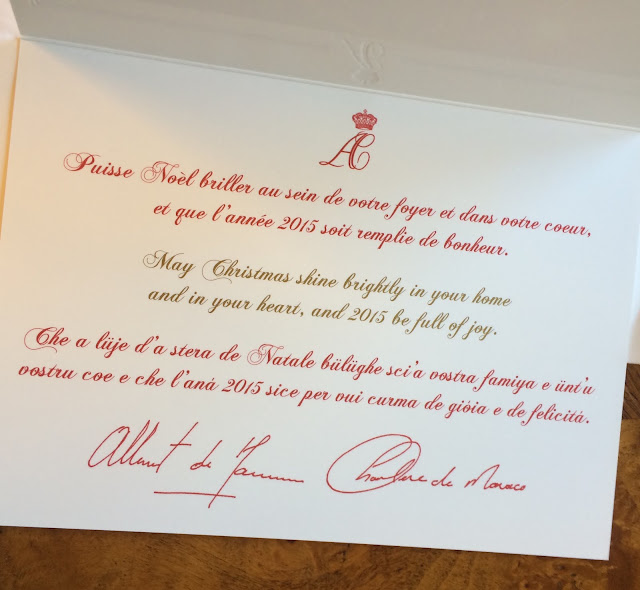 AC
Puisse Noël briller au sein de votre foyer et dans votre coeur,
et que l'année 2015 soit remplie de bonheur.
May Christmas shine brightly in your home
and in your heart, and 2015 be full of joy.
Che a lüje d'a stera de Natale bülüghe sci'a vostra famiya e ünt'u
vostru coe e che l'aná 2015 sice per vui curma de giòia e de felicitá.
Albert de Monaco Charlene de Monaco